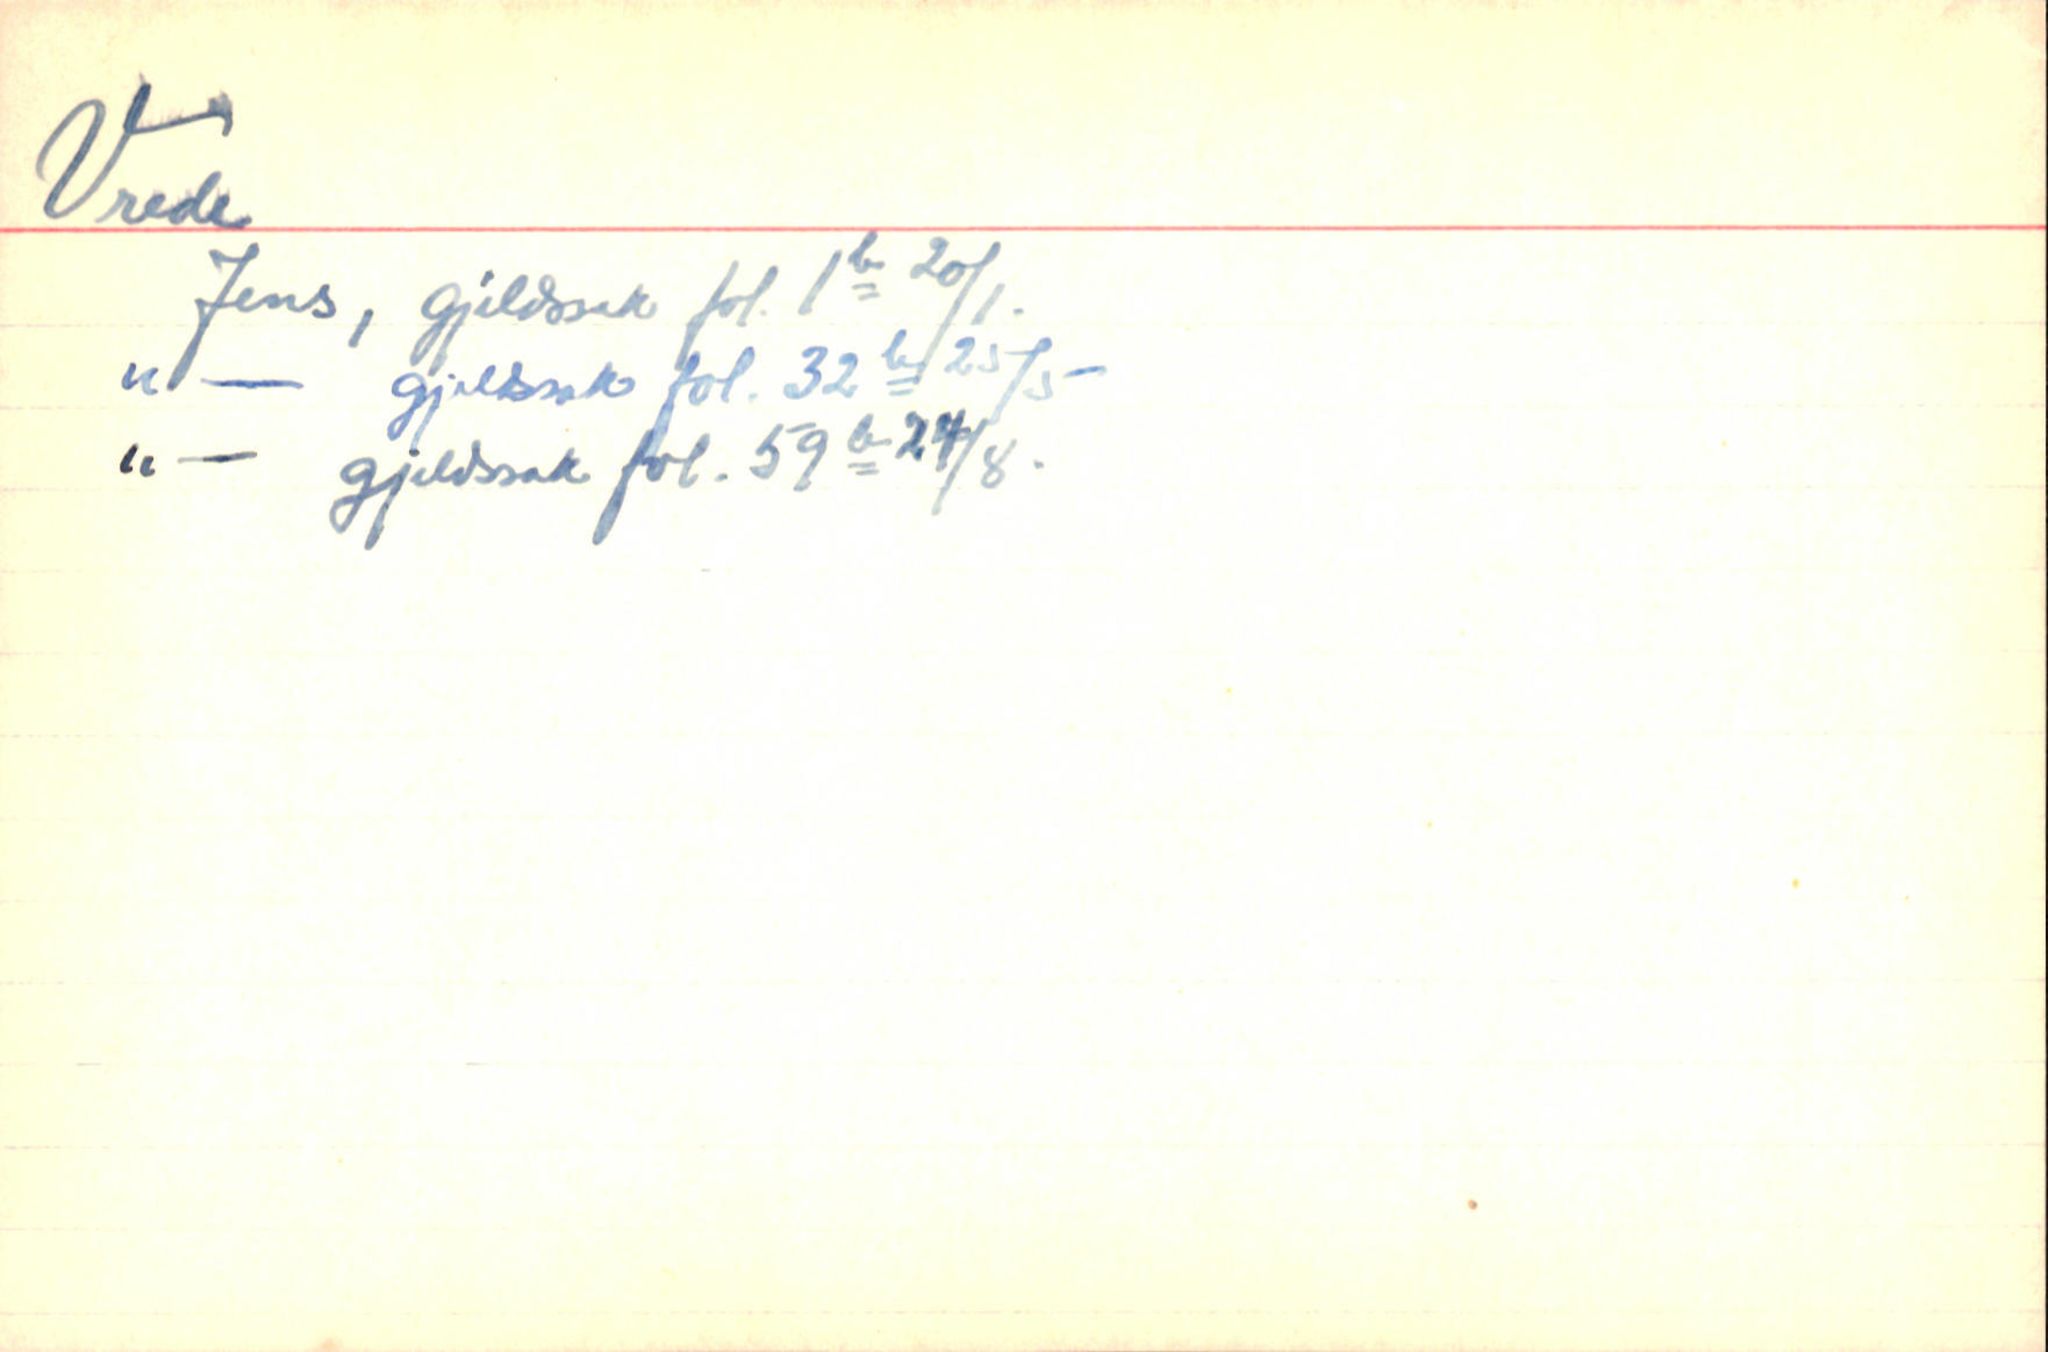 Vrede
Jens, gjeldssak fol. 1 b 20/1.
" — gjeldssak fol. 32 b 25/5
" — gjeldssak fol. 59 b 24/8.